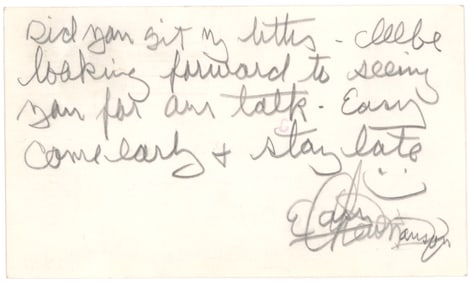 Did you git my letters - Ill be
looking forward to seeing
you for our talk. Easy
Come early + stay late
Easy
Manson